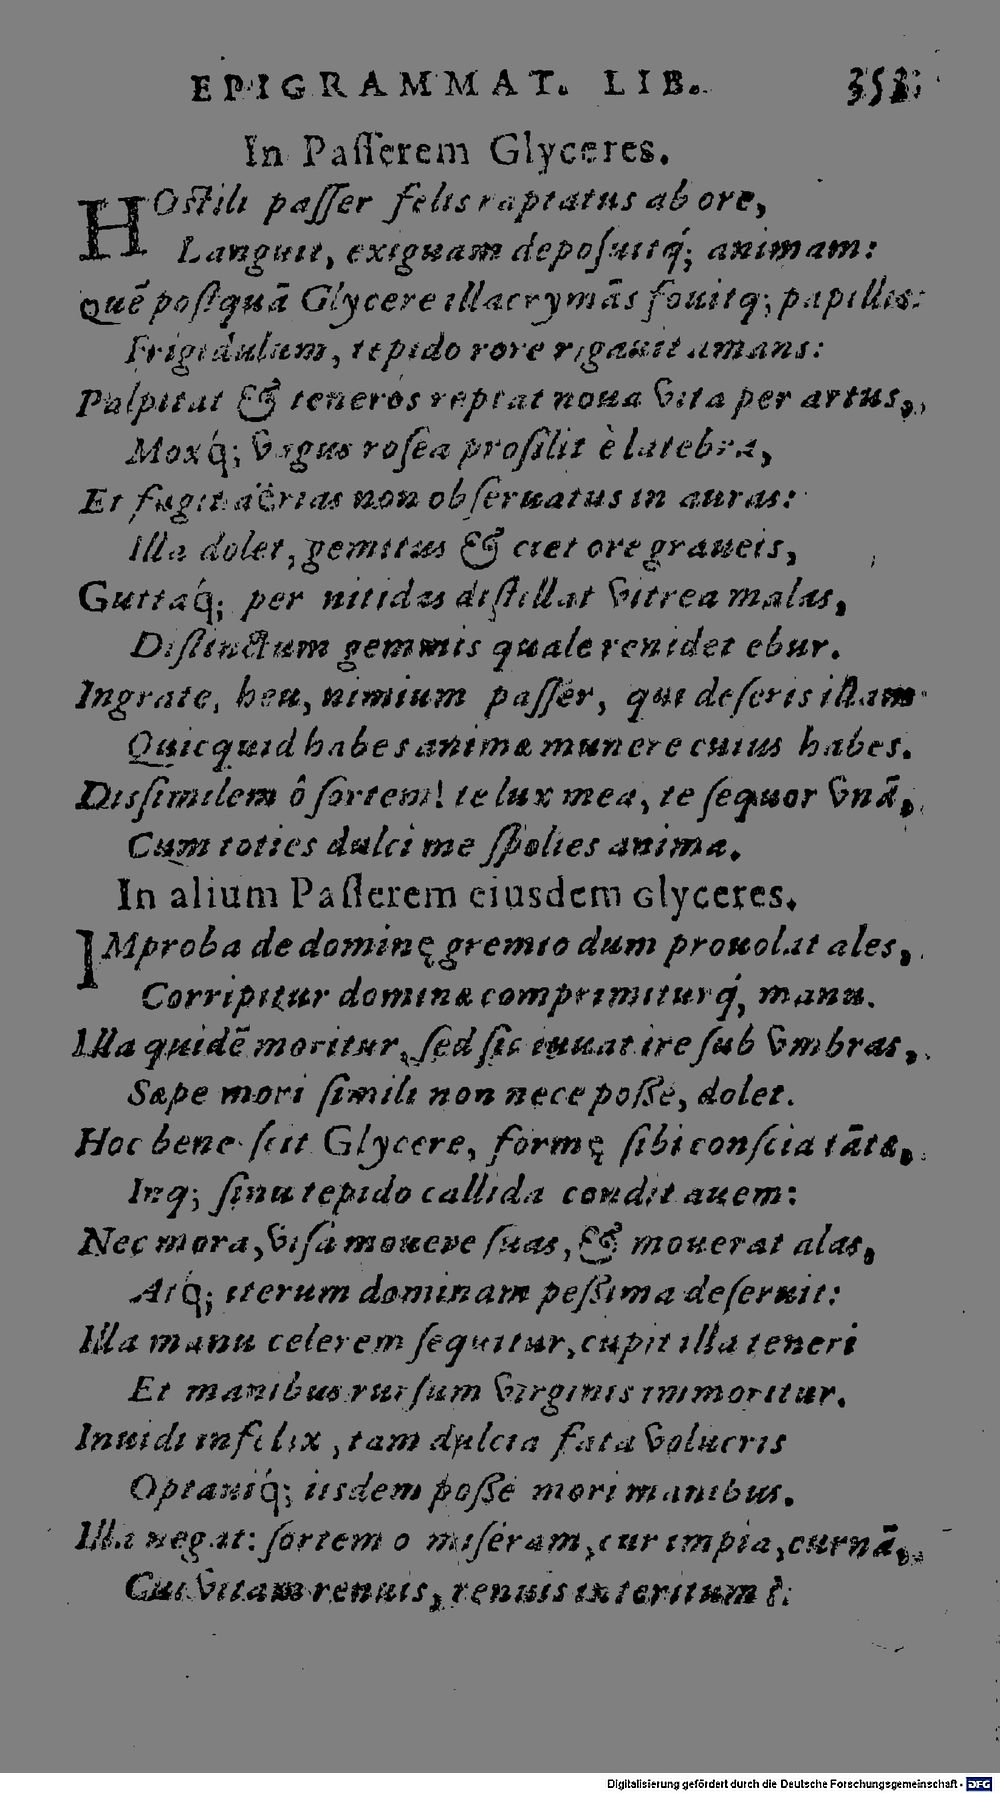 EPIGRAMMAT. LIB. 353
In Paſſerem Glyceres.
HOſtili paſſer felis raptatus ab ore,
Languit, exiguam depoſuitq́; animam:
Quē poſtquā Glycere illacrymās fouitq; papillis:
Frigidulum, tepido rore rigauit amans:
Palpitat & teneros reptat noua vita per artus,
Moxq́; vagus roſea proſilit è latebra,
Et fugit aërias non obſeruatus in auras:
Illa dolet, gemitus & ciet ore graueis,
Guttaq́; per nitidas diſtillat vitrea malas,
Diſtinctum gemmis quale renidet ebur.
Ingrate, heu, nimium paſſer, qui deſeris illam
Quicquid habes animæ munere cuius habes.
Disſimilem ô ſortem! te lux mea, te ſequor vnā,
Cum toties dulci me ſpolies anima.
In alium Paſſerem eiusdem Glyceres.
IMproba de dominę gremio dum prouolat ales,
Corripitur domina comprimiturq́, manu.
Illa quidē moritur, ſed ſic iuuat ire ſub vmbras,
Sæpe mori ſimili non nece poſſe, dolet.
Hoc bene ſcit Glycere, formę ſibi conſcia tāta,
Inq; ſinu tepido callida condit auem:
Nec mora, viſa mouere ſuas, & mouerat alas,
Atq́; iterum dominam peſſima deſeruit:
Illa manu celerem ſequitur, cupit illa teneri
Et manibus rurſum virginis immoritur.
Inuidi infelix, tam dulcia fata volucris
Optauiq́; iisdem poſſe mori manibus.
Illa negat: ſortem o miſeram, cur impia, cur nā,
Cui vitam renuis, renuis interitum?
Digitalisierung gefördert durch die Deutsche Forschungsgemeinschaft - DFG